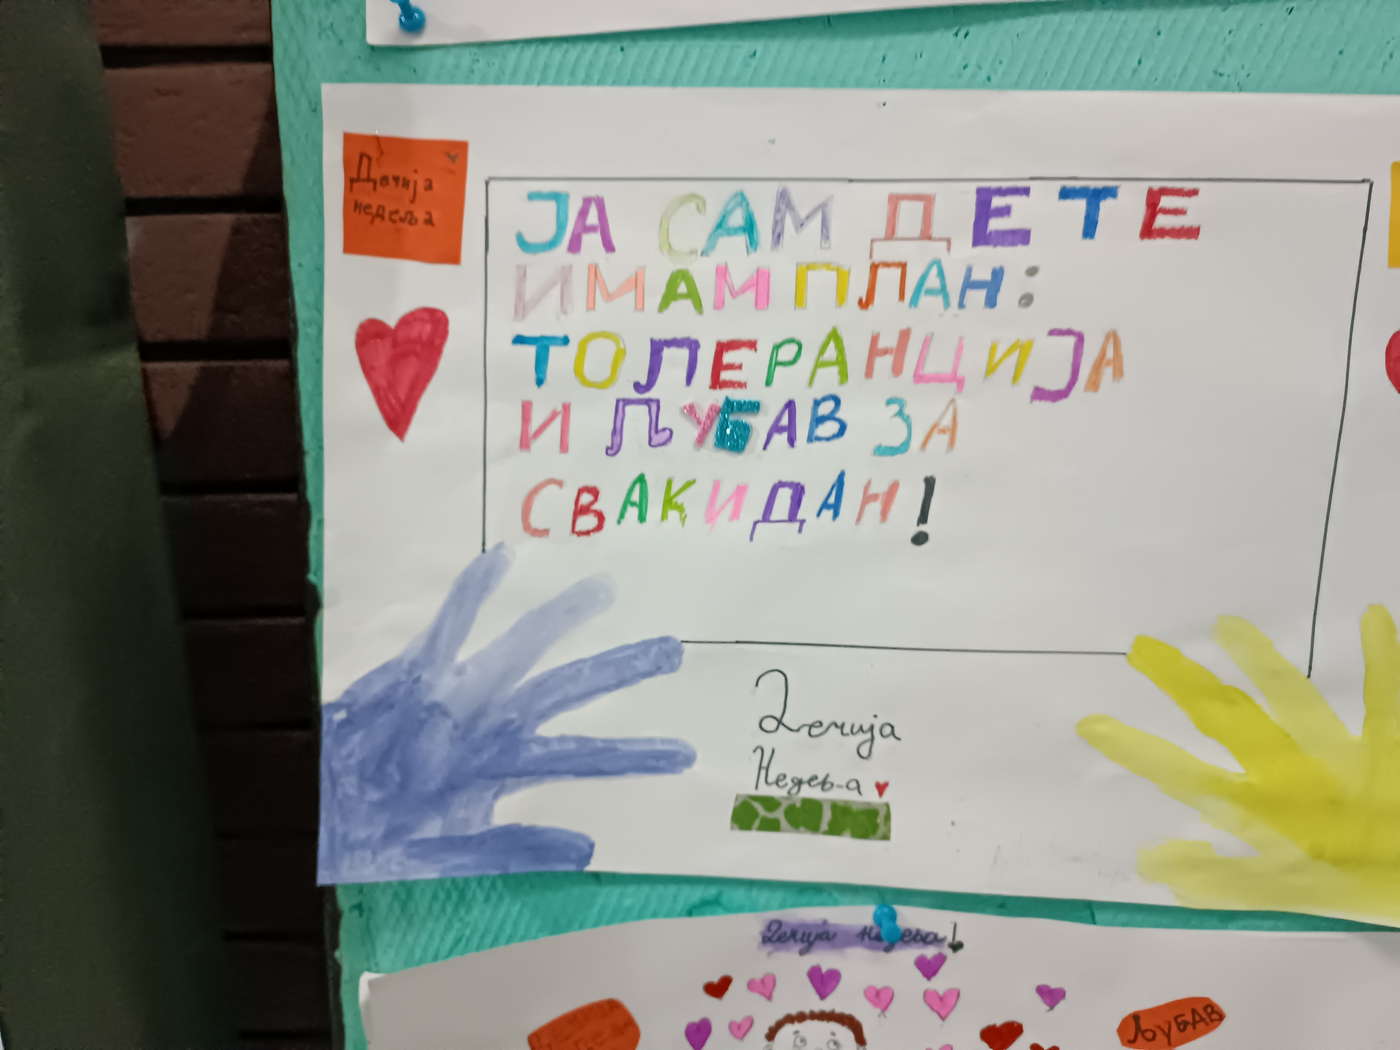 Дечија
недеља
ЈА САМ ДЕТЕ
ИМАМ ПЛАН:
ТОЛЕРАНЦИЈА
И ЉУБАВ ЗА
СВАКИ ДАН!
Дечија
Недеља
Дечија недеља!
ЉУБАВ